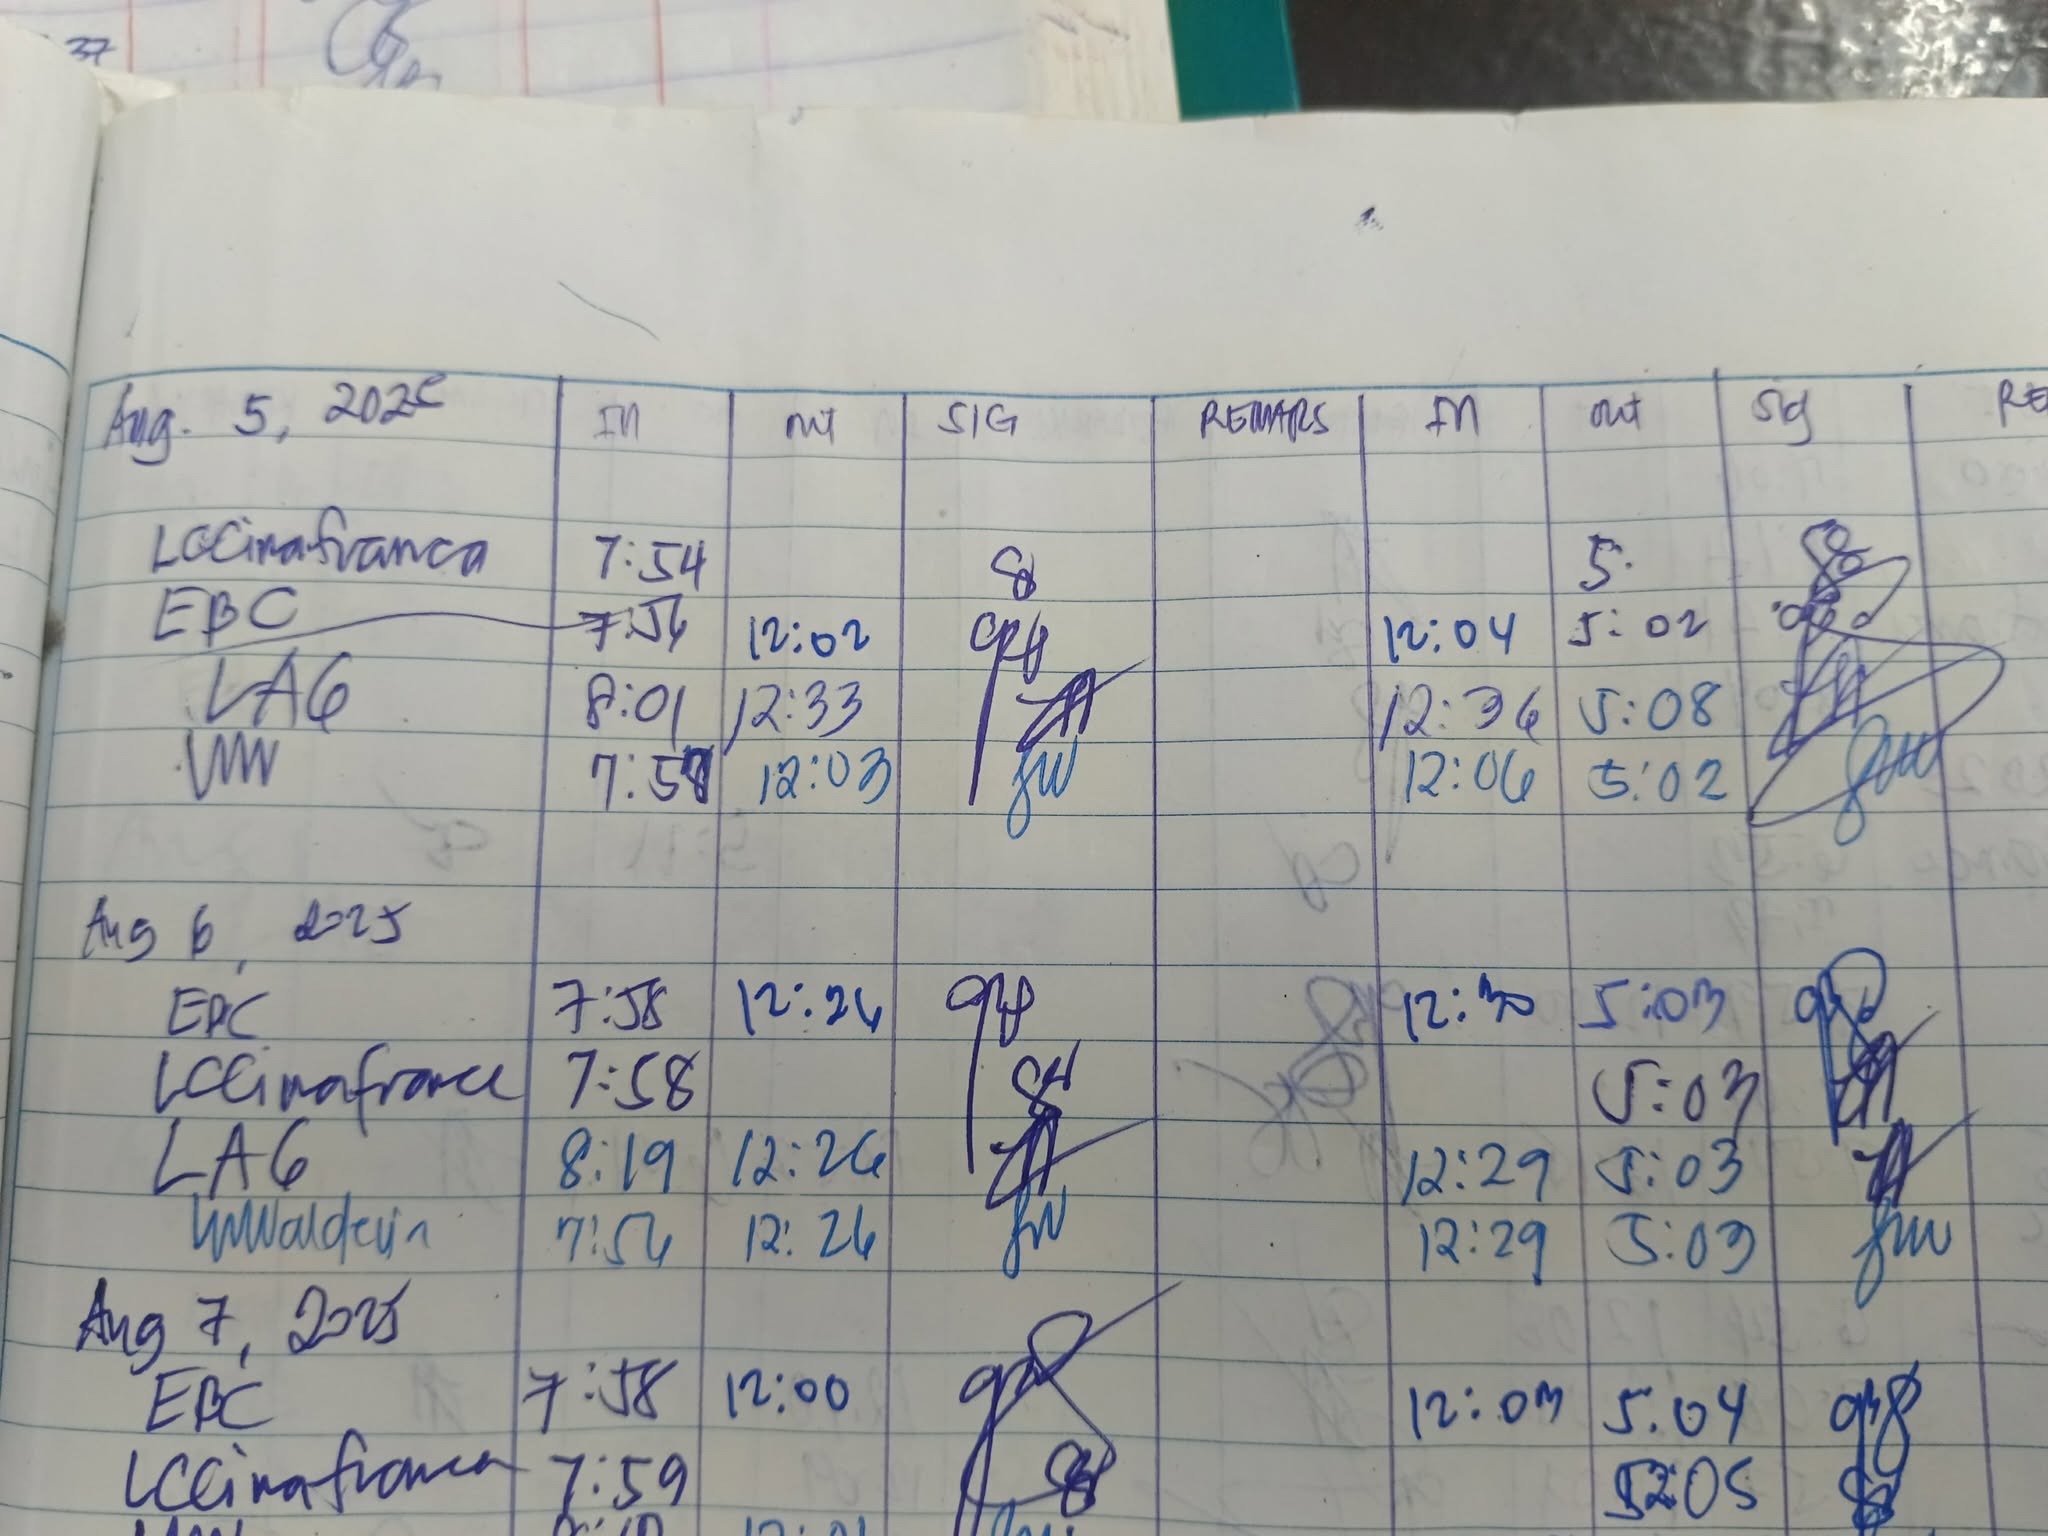 37
Aug. 5, 202 IN out SIG REMARS IN out Sig RE
LCCinafranca 7:54 5.
EBC 7:56 12:02 12:04 5:02
LAG 8:01 12:33 12:36 5:08
VMV 12:03 12:06 5:02
Aug 6, 2025
EBC 7:58 12:26 12:30 5:03
LCCinafranca 7:58 5:03
LAG 8:19 12:26 12:29 5:03
VMValdevin 7:56 12:26 12:29 5:03
Aug 7, 2025
EBC 7:58 12:00 12:03 5.04
LCCinafranca 7:59 5:05